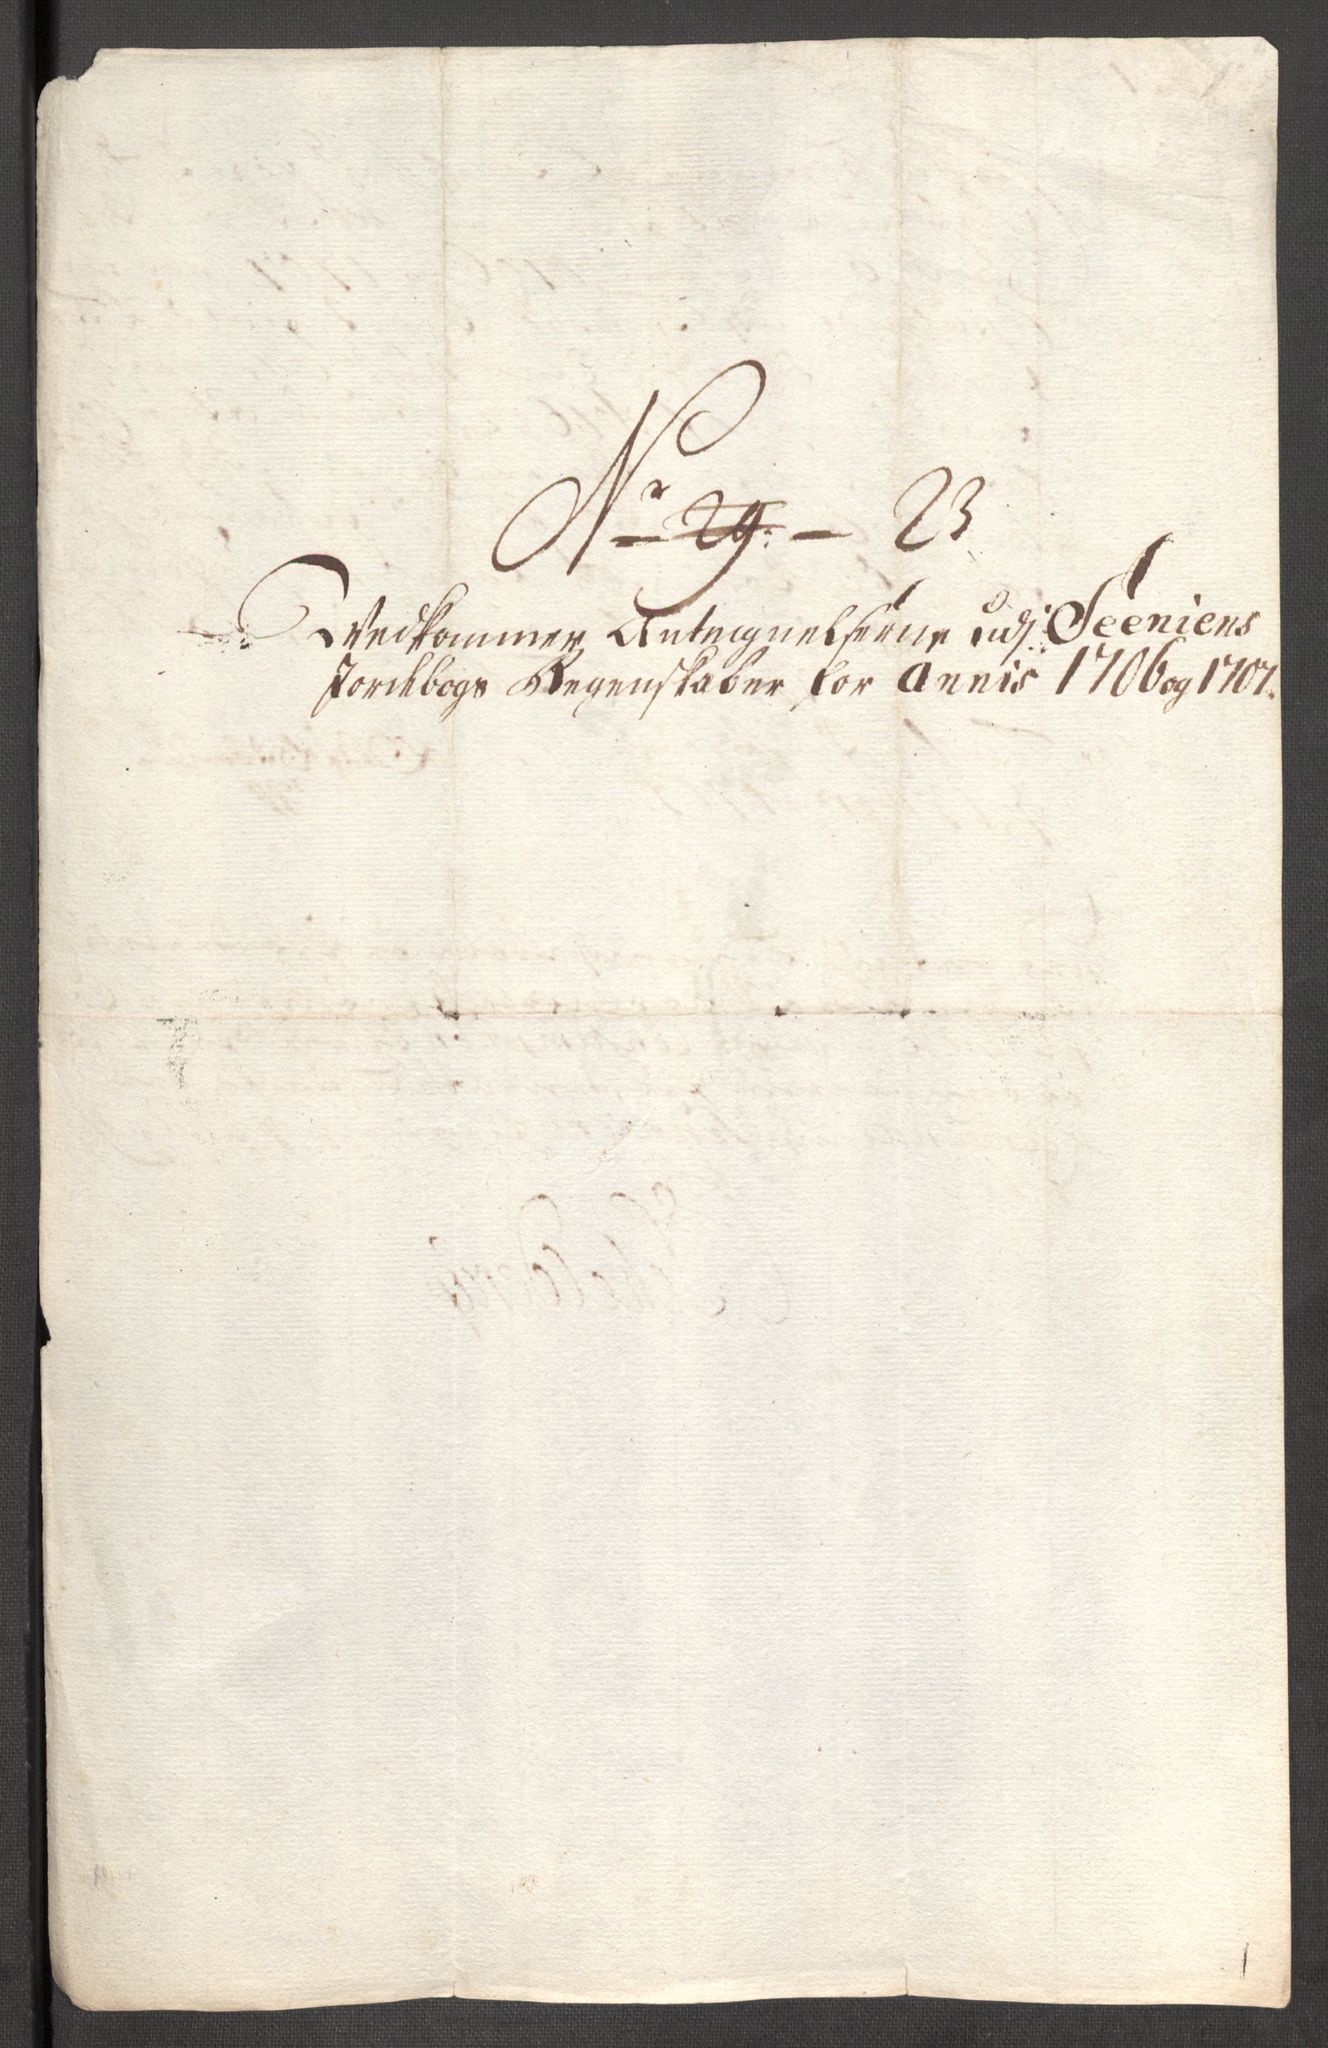 Nr 29. — 23
Vedkommer Antegnelserne udj Seeniens
Jordebogs Regenskaber for Annis 1706 og 1707.
1